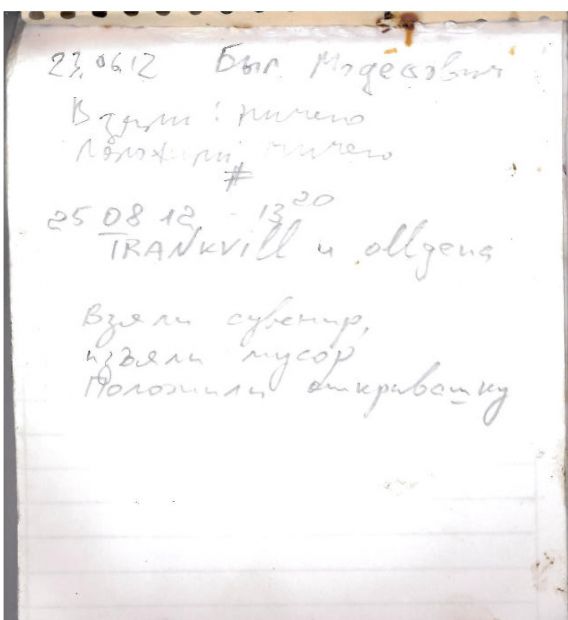 23.06.12 Был Модестович
Взяли: ничего
Положили: ничего
#
25 08 12 - 13 20
TRANKVILL и
Взяли сувенир,
изъяли мусор
Положили открывашку